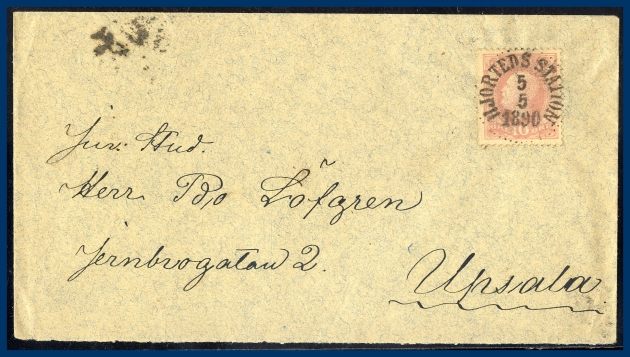 HJORTEDS STATION
5
5
1890
10
Jur. Stud.
Herr Bo Löfgren
Jernbrogatan 2.
Upsala